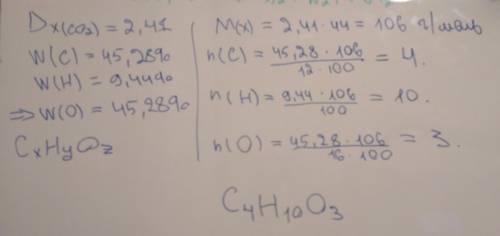 Dx(CO2) = 2,41
W(C) = 45,28%
W(H) = 9,44%
=> W(O) = 45,28%
CxHyOz
M(x) = 2,41·44 = 106 г/моль
n(C) = 45,28·106 / 12·100 = 4.
n(H) = 9,44·106 / 100 = 10.
n(O) = 45,28·106 / 16·100 = 3.
C4H10O3